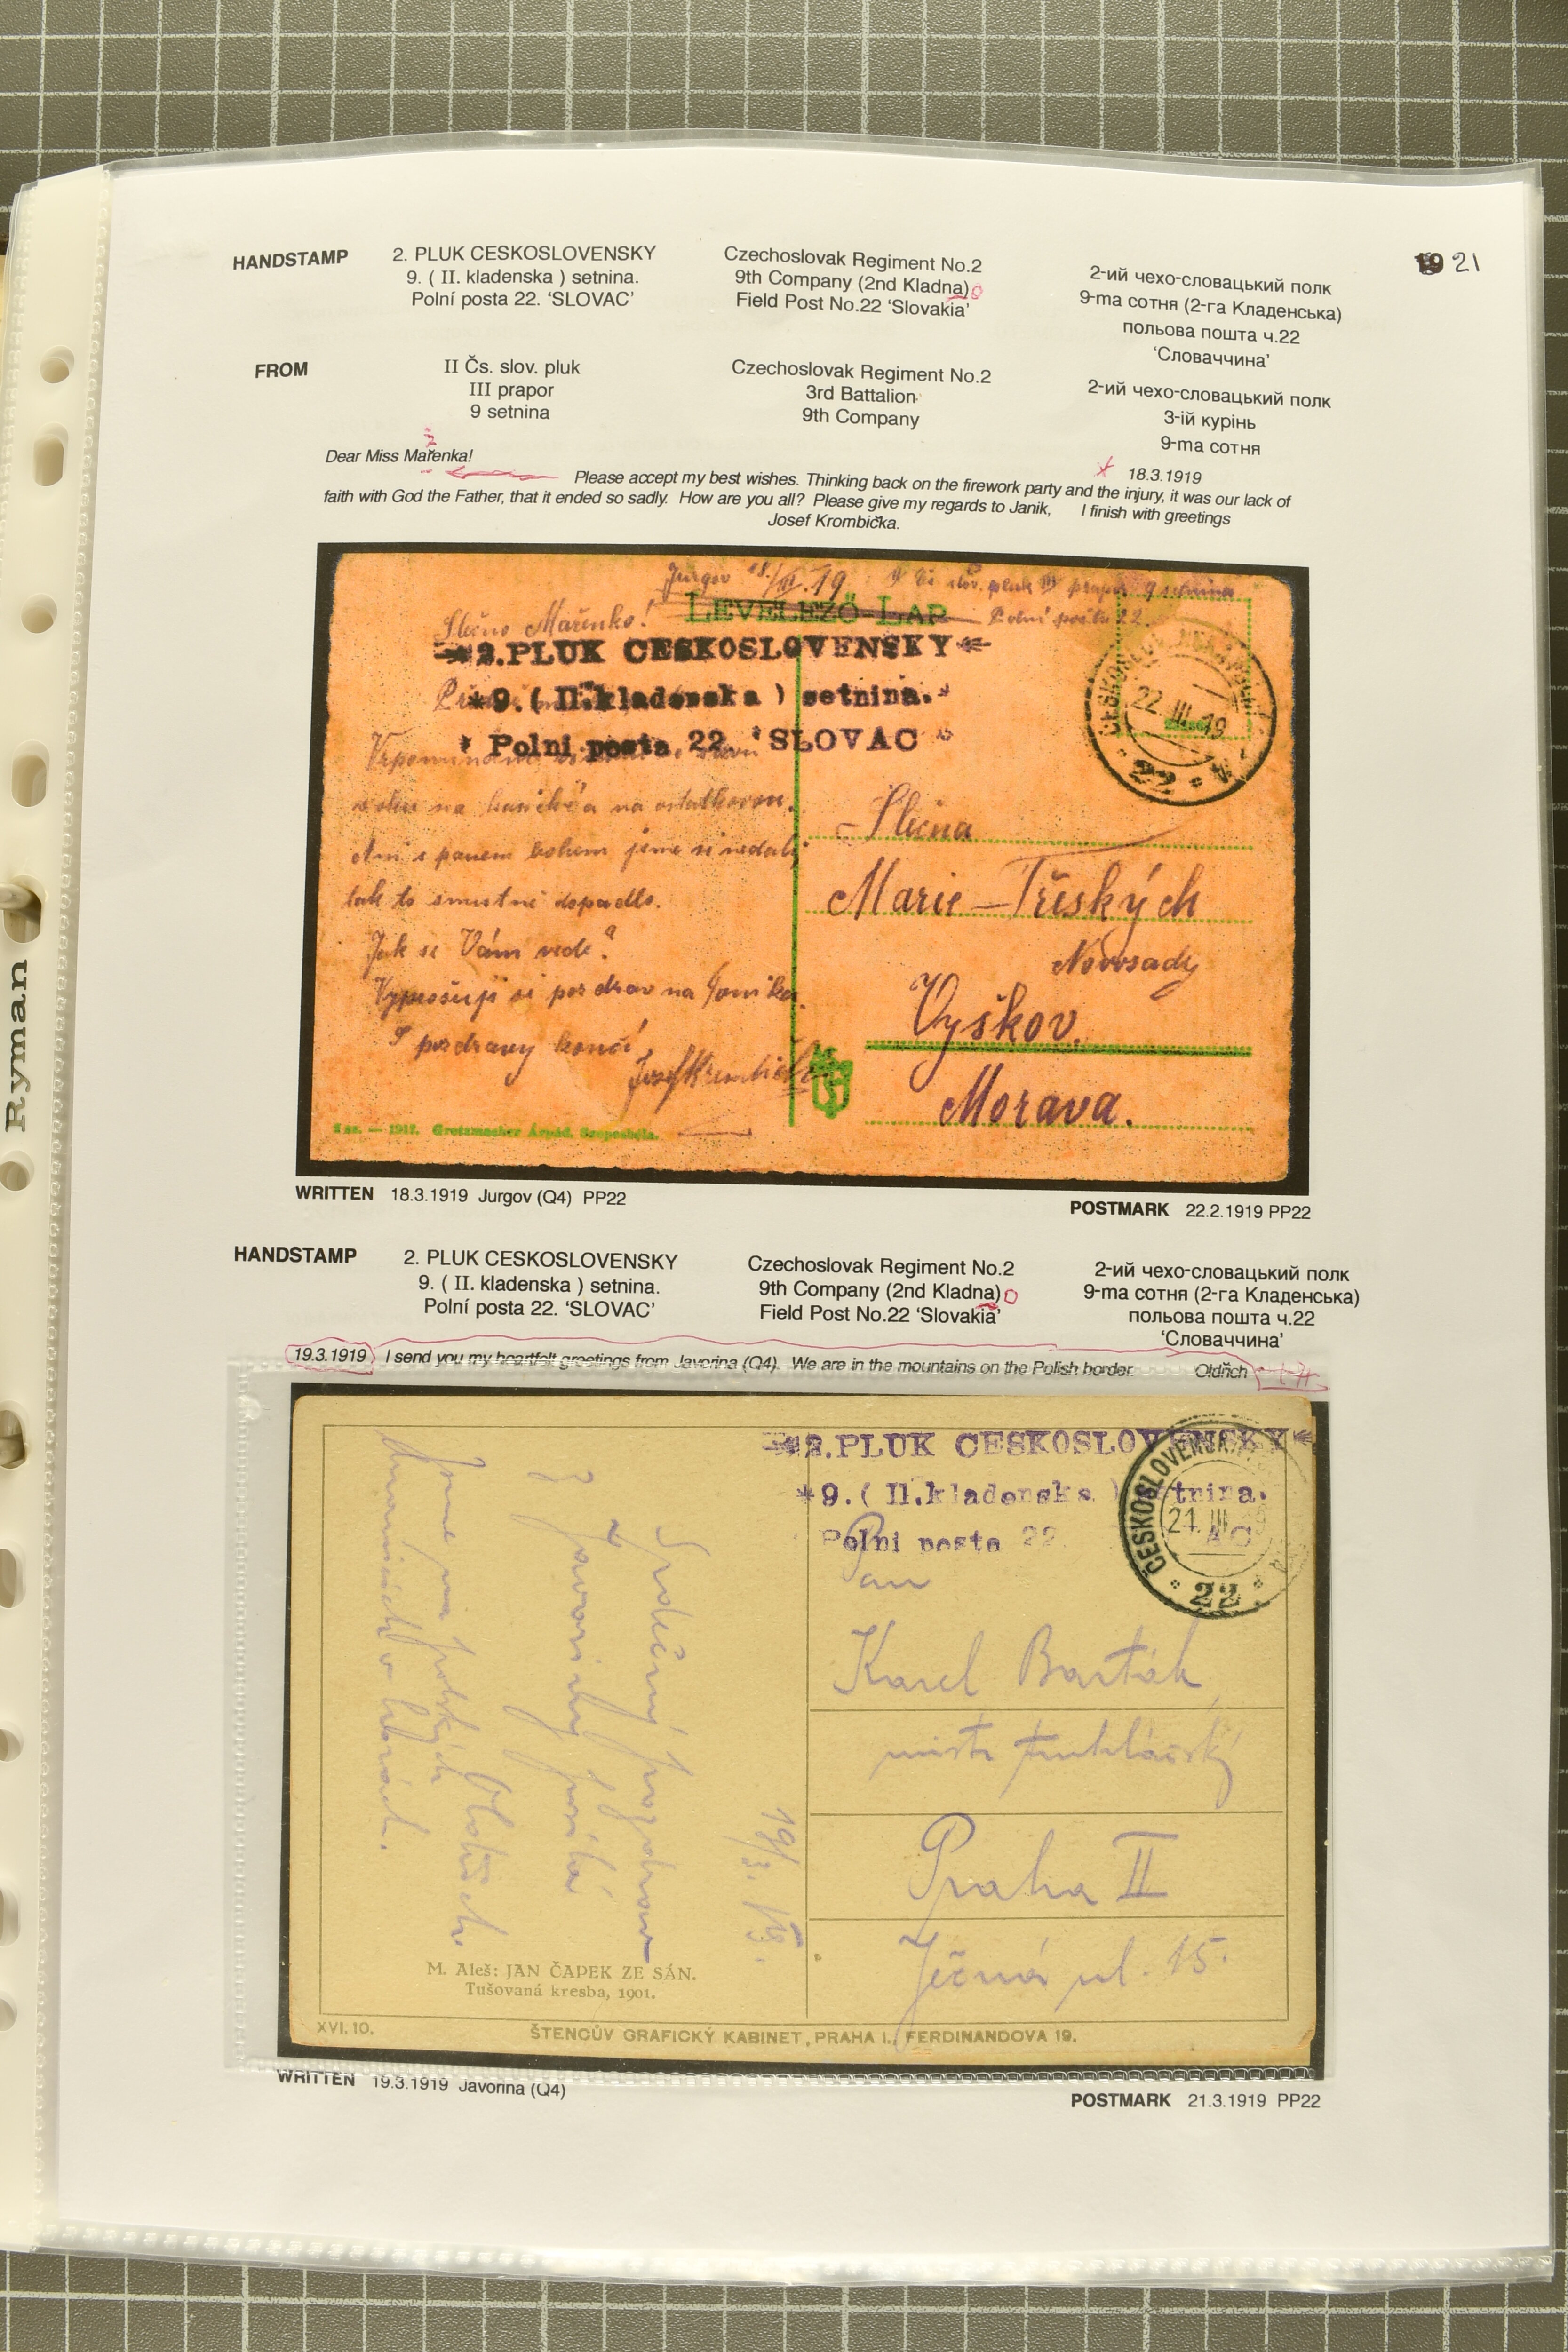 HANDSTAMP
2. PLUK CESKOSLOVENSKY
9. ( II. kladenska ) setnina.
Polní posta 22. ‘SLOVAC’
Czechoslovak Regiment No.2
9th Company (2nd Kladna)
Field Post No.22 ‘Slovakia’
2-ий чехо-словацький полк
9-та сотня (2-га Кладенська)
польова пошта ч.22
‘Словаччина’
21
FROM
II Čs. slov. pluk
III prapor
9 setnina
Czechoslovak Regiment No.2
3rd Battalion
9th Company
2-ий чехо-словацький полк
3-ій курінь
9-та сотня
Dear Miss Mařenka!
18.3.1919
Please accept my best wishes. Thinking back on the firework party and the injury, it was our lack of
faith with God the Father, that it ended so sadly. How are you all? Please give my regards to Janik, I finish with greetings
Josef Krombička.
Jurgov 18./III.19
slov. pluk III prapor 9 setnina
Polní pošta 22
LEVELEZŐ-LAP
Slečno Mařenko!
2.PLUK CESKOSLOVENSKY
*9.( II.kladenska ) setnina.*
Polni posta 22. 'SLOVAC'
ČESKOSLOVENSKÁ
22.III.19
22
Ani s panem bohem jsme si nedali,
tak to smutně dopadlo.
Jak se Vám vede?
S pozdravy končí
Slečna
Marie Třeských
Novosady
Vyškov.
Morava.
1917. Gretzmacher Árpád, Szepesbéla.
WRITTEN 18.3.1919 Jurgov (Q4) PP22
POSTMARK 22.2.1919 PP22
HANDSTAMP
2. PLUK CESKOSLOVENSKY
9. ( II. kladenska ) setnina.
Polní posta 22. ‘SLOVAC’
Czechoslovak Regiment No.2
9th Company (2nd Kladna)
Field Post No.22 ‘Slovakia’
2-ий чехо-словацький полк
9-та сотня (2-га Кладенська)
польова пошта ч.22
‘Словаччина’
19.3.1919 I send you my heartfelt greetings from Javorina (Q4). We are in the mountains on the Polish border. Oldřich
2.PLUK CESKOSLOVENSKY
*9.( II.kladenska ) setnina.
Polni posta 22.
ČESKOSLOVENSKÁ
21.III.19
22
Pan
Karel Barták
Praha II
Ječná ul. 15.
19/3. 19.
Srdečný pozdrav
z Javoriny posílá
Oldřich.
M. Aleš: JAN ČAPEK ZE SÁN.
Tušovaná kresba, 1901.
XVI. 10.
ŠTENCŮV GRAFICKÝ KABINET, PRAHA I., FERDINANDOVA 19.
WRITTEN 19.3.1919 Javorina (Q4)
POSTMARK 21.3.1919 PP22
Ryman